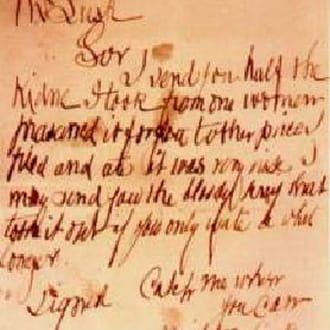 Mr Lusk
Sor
I send you half the
Kidne I took from one women
prasarved it for you tother piece I
fried and ate it was very nise I
may send you the bloody knif that
took it out if you only wate a whil
longer.
Signed Catch me when
you Can